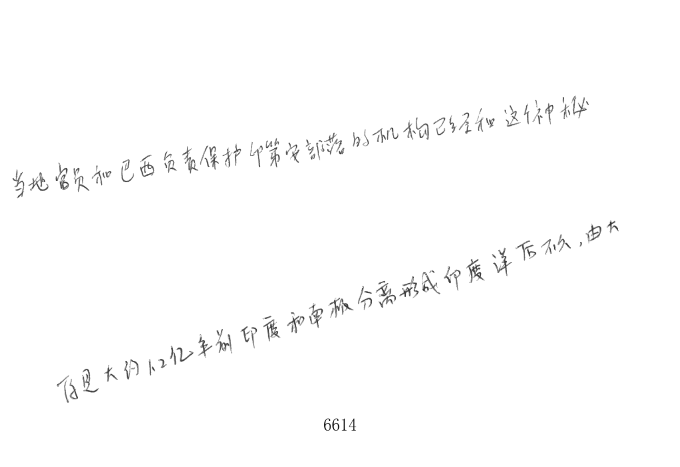 当地官员和巴西负责保护印第安部落的机构已经和这个神秘
而是大约1.2亿年前印度和南极分离形成印度洋后不久,由大
6614